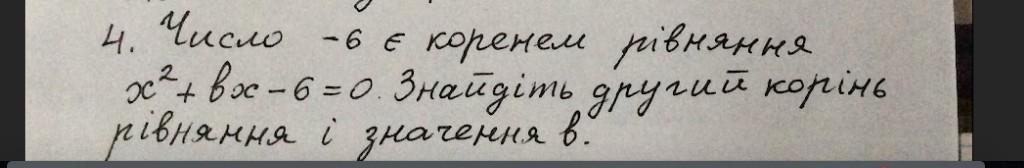 4. Число -6 є коренем рівняння
x² + bx - 6 = 0. Знайдіть другий корінь
рівняння і значення b.